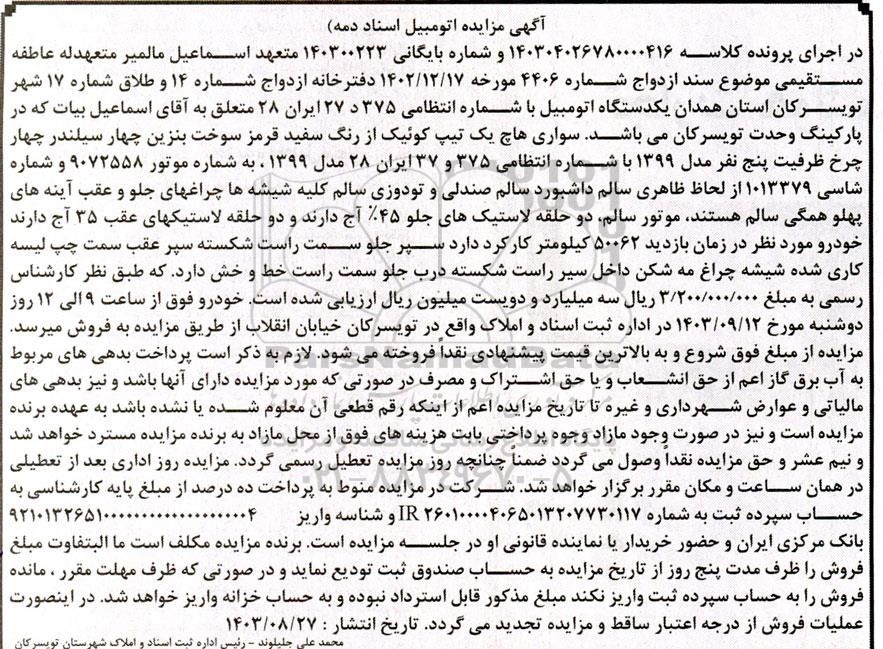 آگهی مزایده اتومبیل اسناد ذمه)
در اجرای پرونده کلاسه ۱۴۰۳۰۴۰۲۶۷۸۰۰۰۰۴۱۶ و شماره بایگانی ۱۴۰۳۰۰۲۲۳ متعهد اسماعیل مالمیر متعهدله عاطفه
مستقیمی موضوع سند ازدواج شماره ۴۴۰۶ مورخه ۱۴۰۲/۱۲/۱۷ دفترخانه ازدواج شماره ۱۴ و طلاق شماره ۱۷ شهر
تویسرکان استان همدان یکدستگاه اتومبیل با شماره انتظامی ۳۷۵ د ۲۷ ایران ۲۸ متعلق به آقای اسماعیل بیات که در
پارکینگ وحدت تویسرکان می باشد. سواری هاچ بک تیپ کوئیک از رنگ سفید قرمز سوخت بنزین چهار سیلندر چهار
چرخ ظرفیت پنج نفر مدل ۱۳۹۹ با شماره انتظامی ۳۷۵ و ۳۷ ایران ۲۸ مدل ۱۳۹۹ ، به شماره موتور ۹۰۷۲۵۵۸ و شماره
شاسی ۱۰۱۳۳۷۹ از لحاظ ظاهری سالم داشبورد سالم صندلی و تودوزی سالم کلیه شیشه ها چراغهای جلو و عقب آینه های
پهلو همگی سالم هستند، موتور سالم، دو حلقه لاستیک های جلو ۴۵٪ آج دارند و دو حلقه لاستیکهای عقب ۳۵ آج دارند
خودرو مورد نظر در زمان بازدید ۵۰۰۶۲ کیلومتر کار کرد دارد سپر جلو سمت راست شکسته سپر عقب سمت چپ لیسه
کاری شده شیشه چراغ مه شکن داخل سپر راست شکسته درب جلو سمت راست خط و خش دارد. که طبق نظر کارشناس
رسمی به مبلغ ۳/۲۰۰/۰۰۰/۰۰۰ ریال سه میلیارد و دویست میلیون ریال ارزیابی شده است. خودرو فوق از ساعت ۹ الی ۱۲ روز
دوشنبه مورخ ۱۴۰۳/۰۹/۱۲ در اداره ثبت اسناد و املاک واقع در تویسرکان خیابان انقلاب از طریق مزایده به فروش میرسد.
مزایده از مبلغ فوق شروع و به بالاترین قیمت پیشنهادی نقداً فروخته می شود. لازم به ذکر است پرداخت بدهی های مربوط
به آب برق گاز اعم از حق انشعاب و یا حق اشتراک و مصرف در صورتی که مورد مزایده دارای آنها باشد و نیز بدهی های
مالیاتی و عوارض شهرداری و غیره تا تاریخ مزایده اعم از اینکه رقم قطعی آن معلوم شده یا نشده باشد به عهده برنده
مزایده است و نیز در صورت وجود مازاد وجوه پرداختی بابت هزینه های فوق از محل مازاد به برنده مزایده مسترد خواهد شد
و نیم عشر و حق مزایده نقداً وصول می گردد ضمناً چنانچه روز مزایده تعطیل رسمی گردد. مزایده روز اداری بعد از تعطیلی
در همان ساعت و مکان مقرر برگزار خواهد شد. شرکت در مزایده منوط به پرداخت ده درصد از مبلغ پایه کارشناسی به
حساب سپرده ثبت به شماره IR ۲۶۰۱۰۰۰۰۴۰۶۵۰۱۳۲۰۷۷۳۰۱۱۷ و شناسه واریز
بانک مرکزی ایران و حضور خریدار یا نماینده قانونی او در جلسه مزایده است. برنده مزایده مکلف است ما البتفاوت مبلغ
فروش را ظرف مدت پنج روز از تاریخ مزایده به حساب صندوق ثبت تودیع نماید و در صورتی که ظرف مهلت مقرر ، مانده
فروش را به حساب سپرده ثبت واریز نکند مبلغ مذکور قابل استرداد نبوده و به حساب خزانه واریز خواهد شد. در اینصورت
عملیات فروش از درجه اعتبار ساقط و مزایده تجدید می گردد. تاریخ انتشار : ۱۴۰۳/۰۸/۲۷
محمد علی جلیلوند - رئیس اداره ثبت اسناد و املاک شهرستان تویسرکان
ParsNamadData
۰۲۱-۸۸۳۴۹۶۷۰-۵